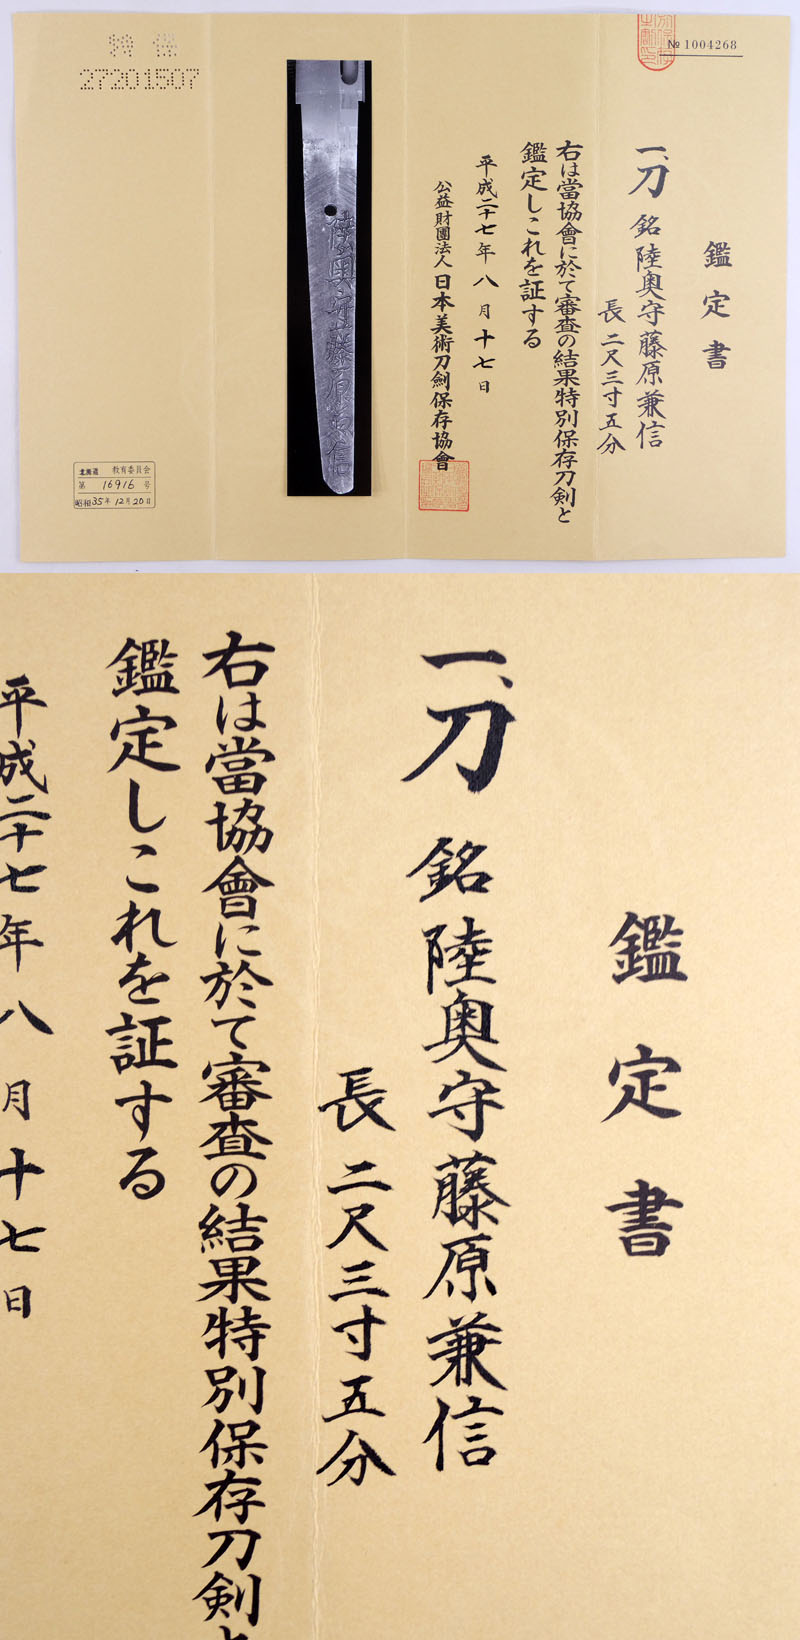 № 1004268
鑑定書
一、刀 銘 陸奥守藤原兼信
長 二尺三寸五分
右は當協會に於て審査の結果特別保存刀剣と
鑑定しこれを証する
平成二十七年八月十七日
公益財團法人 日本美術刀剣保存協會
陸奥守藤原兼信
特保
27201507
北海道 教育委員会
第 16916 号
昭和35年12月20日
鑑定書
一、刀 銘 陸奥守藤原兼信
長 二尺三寸五分
右は當協會に於て審査の結果特別保存刀剣と
鑑定しこれを証する
平成二十七年八月十七日